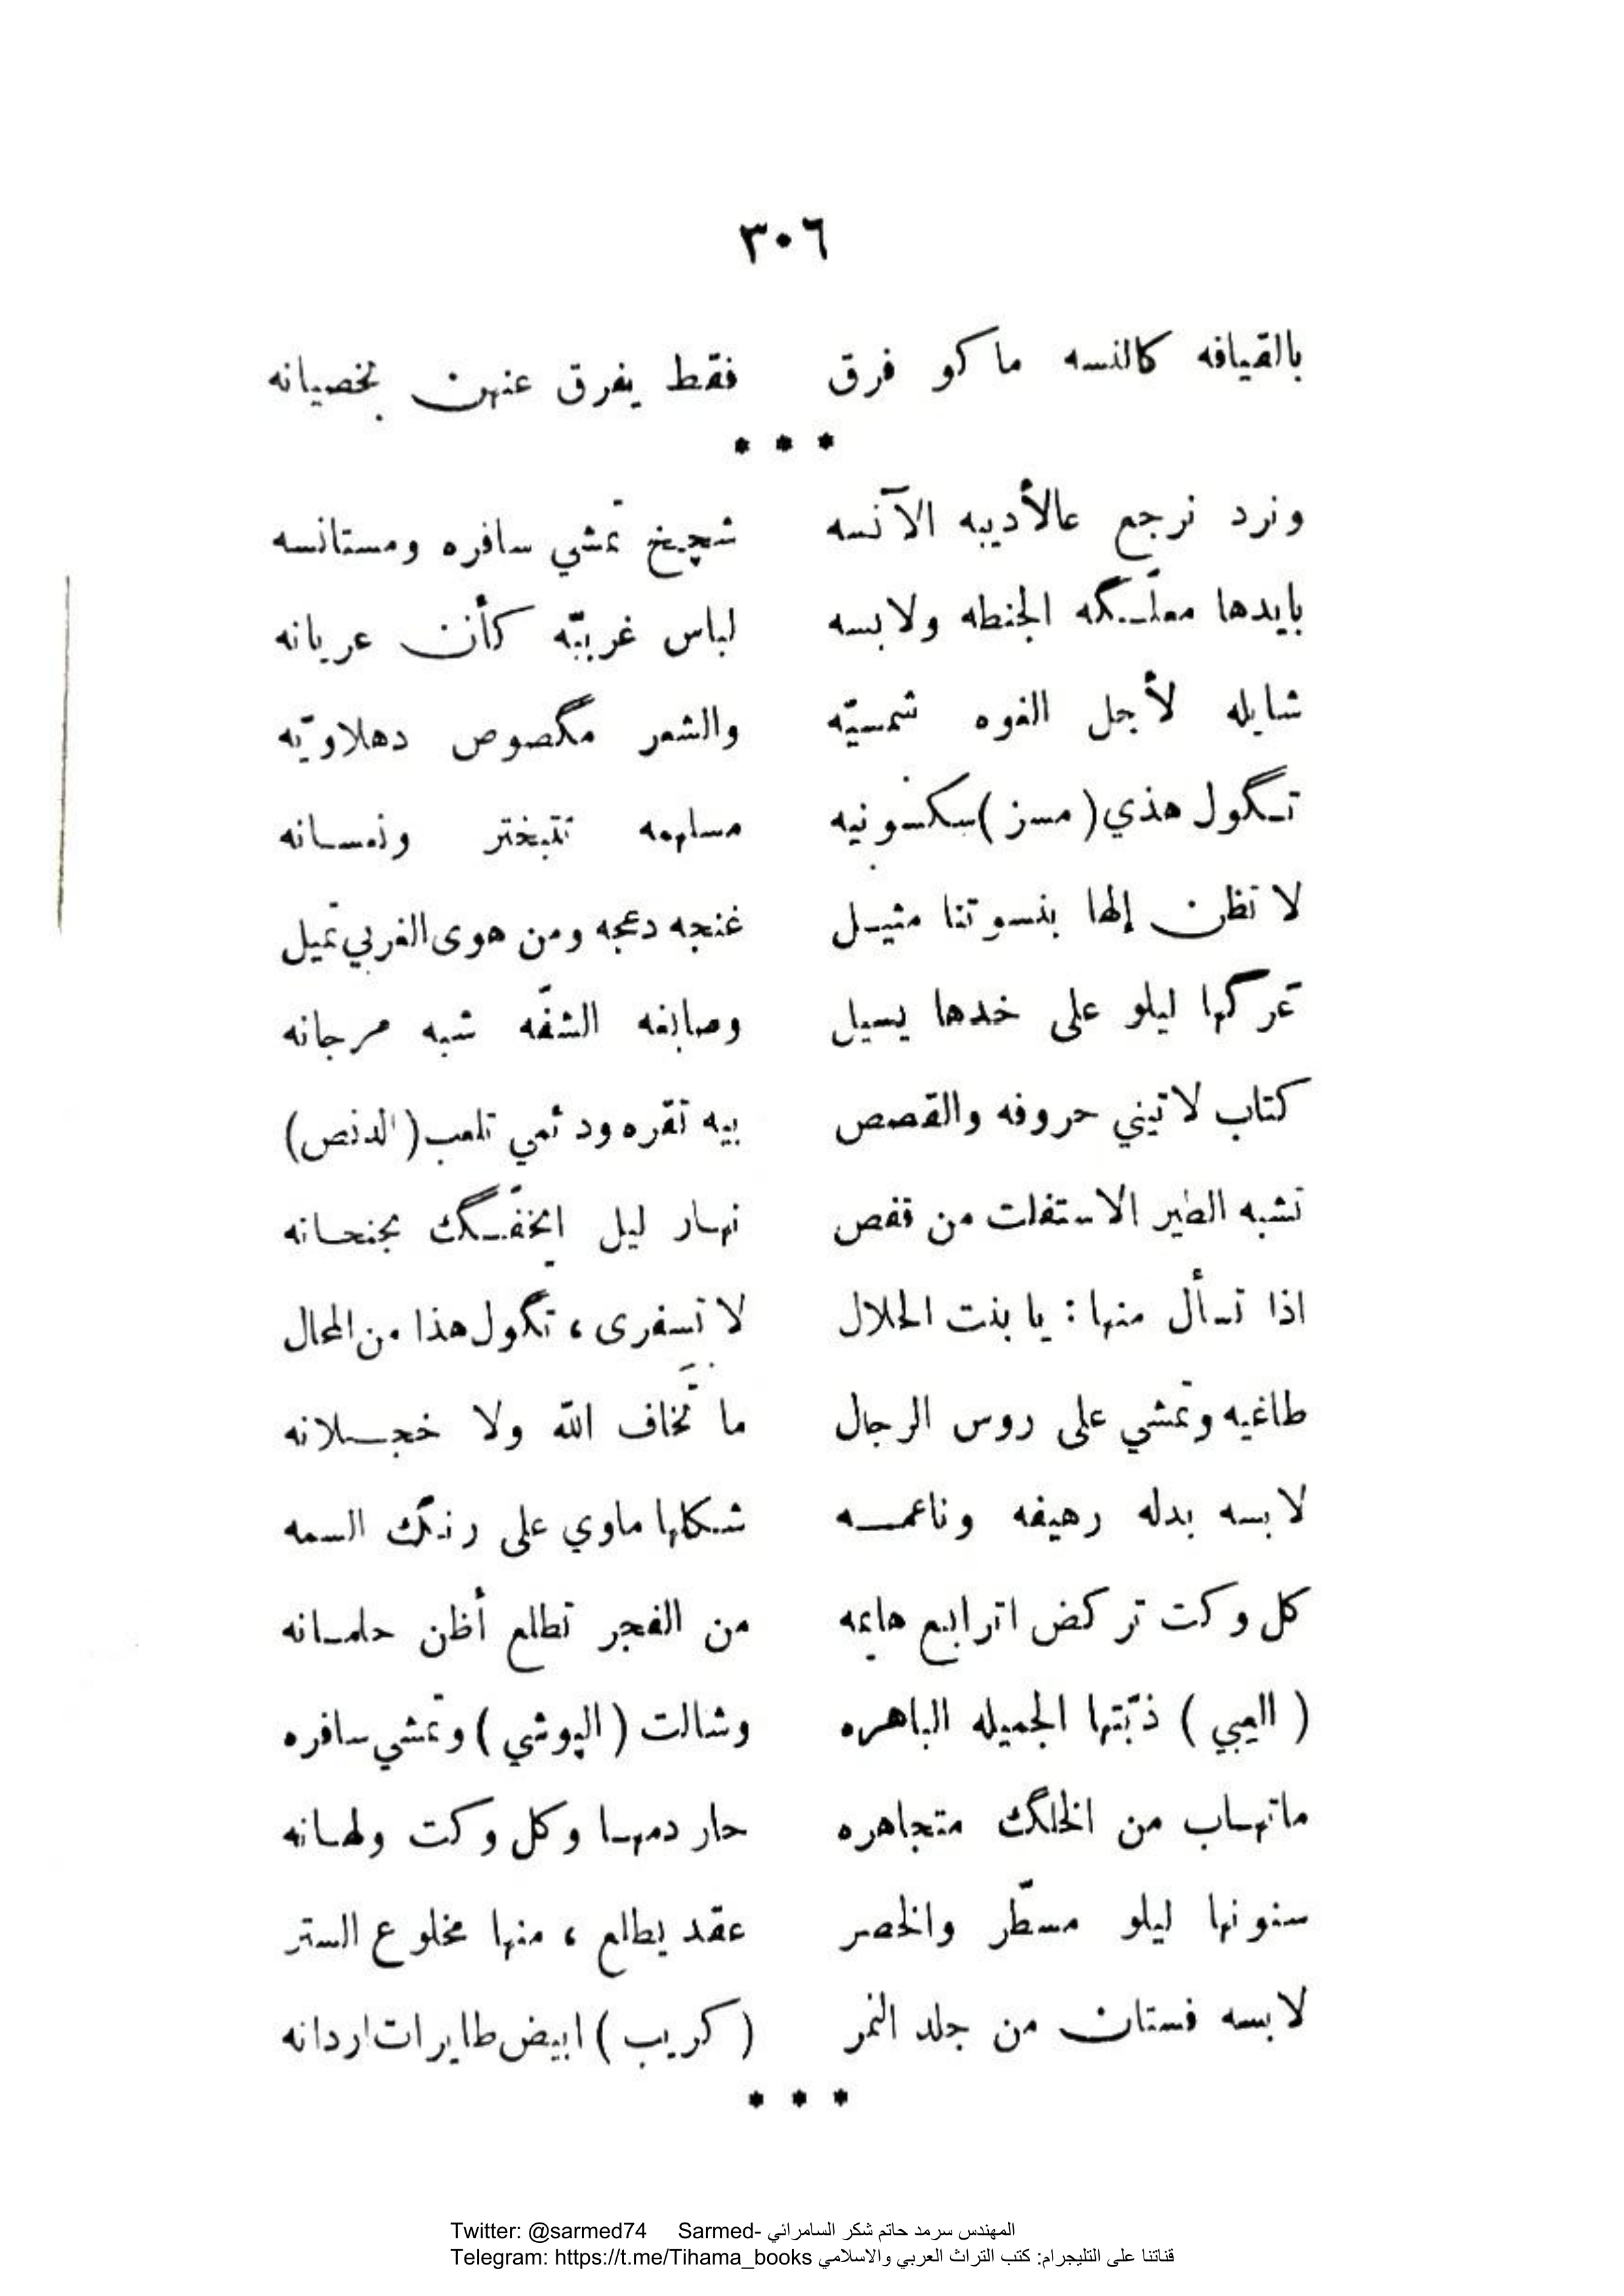 ٣٠٦
بالقيافه كالنسه ماكو فرق فقط يفرق عنهن بخصيانه
* * *
ونرد نرجع عالأديبه الآنسه شچيخ تمشي سافره ومستانسه
بايدها معلّـگه الجنطه ولابسه لباس غربيّه كأن عريانه
شايله لأجل الفوه شمسيّه والشعر مگصوص دهلاويّه
تـگول هذي (مسز) سكسونيه مسلهمه تتبختر ونعسـانه
لا تظن إلها بنسوتنا مثيـل غنجه دعجه ومن هوى الغربي تميل
عرگها ليلو على خدها يسيل وصابغه الشفّه شبه مرجانه
كتاب لاتيني حروفه والقصص بيه تقره ودئمي تلعب (الدنص)
تشبه الطير الاستفلت من قفص نهـار ليل ايخفّـگك بجنحـانه
اذا تـأل منها : يا بنت الحلال لا تسفرى ، تگول هذا من المحال
طاغيه وتمشي على روس الرجال ما تخاف الله ولا خجـلانه
لابسه بدله رهيفه وناعمـه شـكلها ماوي على رنگ السمه
كل وكت تركض اترابع هايمه من الفجر تطلع أظن حلمـانه
(العبي) ذبّتها الجميله الباهره وشالت (الپوشي) وتمشي سافره
ماتهـاب من الخلگ متجاهره حار دمهـا وكل وكت ولهـانه
سنونها ليلو مسطّر والخصر عقد يطلع ، منها مخلوع الستر
لابسه فستان من جلد النمر (كريب) ابيض طايرات اردانه
* * *
Twitter: @sarmed74 Sarmed- المهندس سرمد حاتم شكر السامرائي
Telegram: https://t.me/Tihama_books قناتنا على التليجرام: كتب التراث العربي والاسلامي